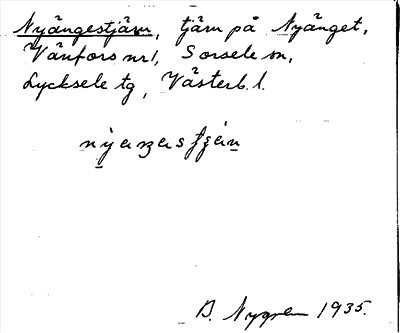 Nyängestjärn, tjärn på Nyänget,
Vänfors nr 1, Sorsele sn,
Lycksele tg, Västerb. l.
B. Nygren 1935.